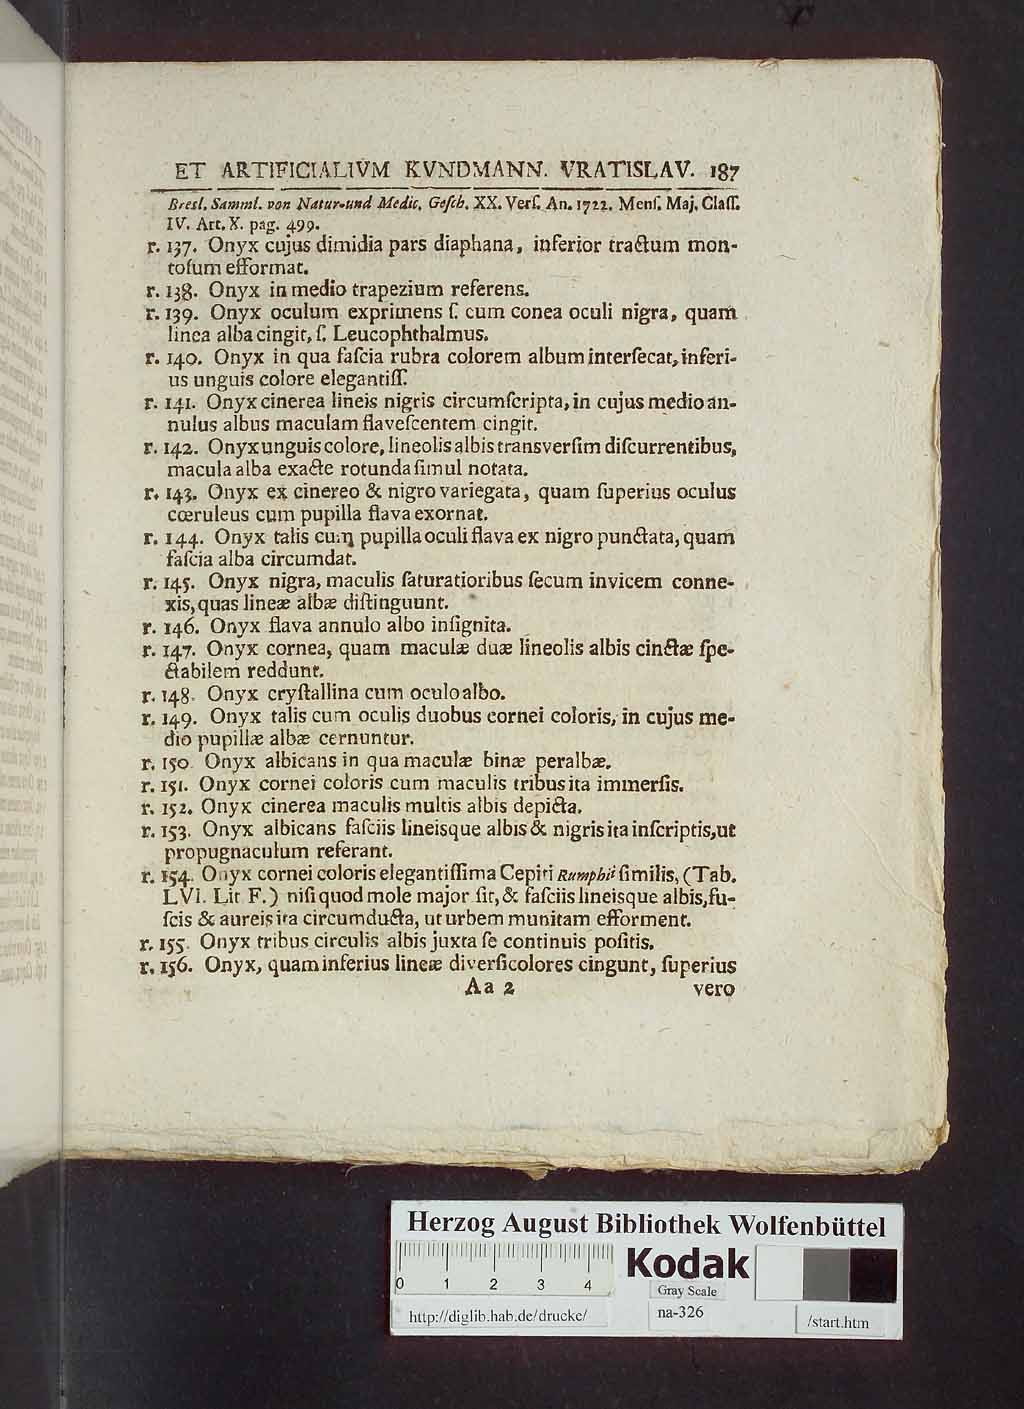 ET ARTIFICIALIVM KVNDMANN. VRATISLAV. 187
Bresl. Samml. von Natur-und Medic. Geſch. XX. Verſ. An. 1722. Menſ. Maj. Claſſ.
IV. Art. X. pag. 499.
r. 137. Onyx cujus dimidia pars diaphana, inferior tractum mon-
toſum efformat.
r. 138. Onyx in medio trapezium referens.
r. 139. Onyx oculum exprimens ſ. cum conea oculi nigra, quam
linea alba cingit, ſ. Leucophthalmus.
r. 140. Onyx in qua faſcia rubra colorem album interſecat, inferi-
us unguis colore elegantiſſ.
r. 141. Onyx cinerea lineis nigris circumſcripta, in cujus medio an-
nulus albus maculam flaveſcentem cingit.
r. 142. Onyx unguis colore, lineolis albis transverſim diſcurrentibus,
macula alba exacte rotunda ſimul notata.
r. 143. Onyx ex cinereo & nigro variegata, quam ſuperius oculus
cœruleus cum pupilla flava exornat.
r. 144. Onyx talis cum pupilla oculi flava ex nigro punctata, quam
faſcia alba circumdat.
r. 145. Onyx nigra, maculis ſaturatioribus ſecum invicem conne-
xis, quas lineæ albæ diſtinguunt.
r. 146. Onyx flava annulo albo inſignita.
r. 147. Onyx cornea, quam maculæ duæ lineolis albis cinctæ ſpe-
ctabilem reddunt.
r. 148. Onyx cryſtallina cum oculo albo.
r. 149. Onyx talis cum oculis duobus cornei coloris, in cujus me-
dio pupillæ albæ cernuntur.
r. 150. Onyx albicans in qua maculæ binæ peralbæ.
r. 151. Onyx cornei coloris cum maculis tribus ita immerſis.
r. 152. Onyx cinerea maculis multis albis depicta.
r. 153. Onyx albicans faſciis lineisque albis & nigris ita inſcriptis, ut
propugnaculum referant.
r. 154. Onyx cornei coloris elegantiſſima Cepiti Rumphii ſimilis, (Tab.
LVI. Lit F.) niſi quod mole major ſit, & faſciis lineisque albis, fu-
ſcis & aureis ita circumducta, ut urbem munitam efforment.
r. 155. Onyx tribus circulis albis juxta ſe continuis poſitis.
r. 156. Onyx, quam inferius lineæ diverſicolores cingunt, ſuperius
Aa 2 vero
Herzog August Bibliothek Wolfenbüttel
0 1 2 3 4
Kodak
Gray Scale
http://diglib.hab.de/drucke/
na-326
/start.htm